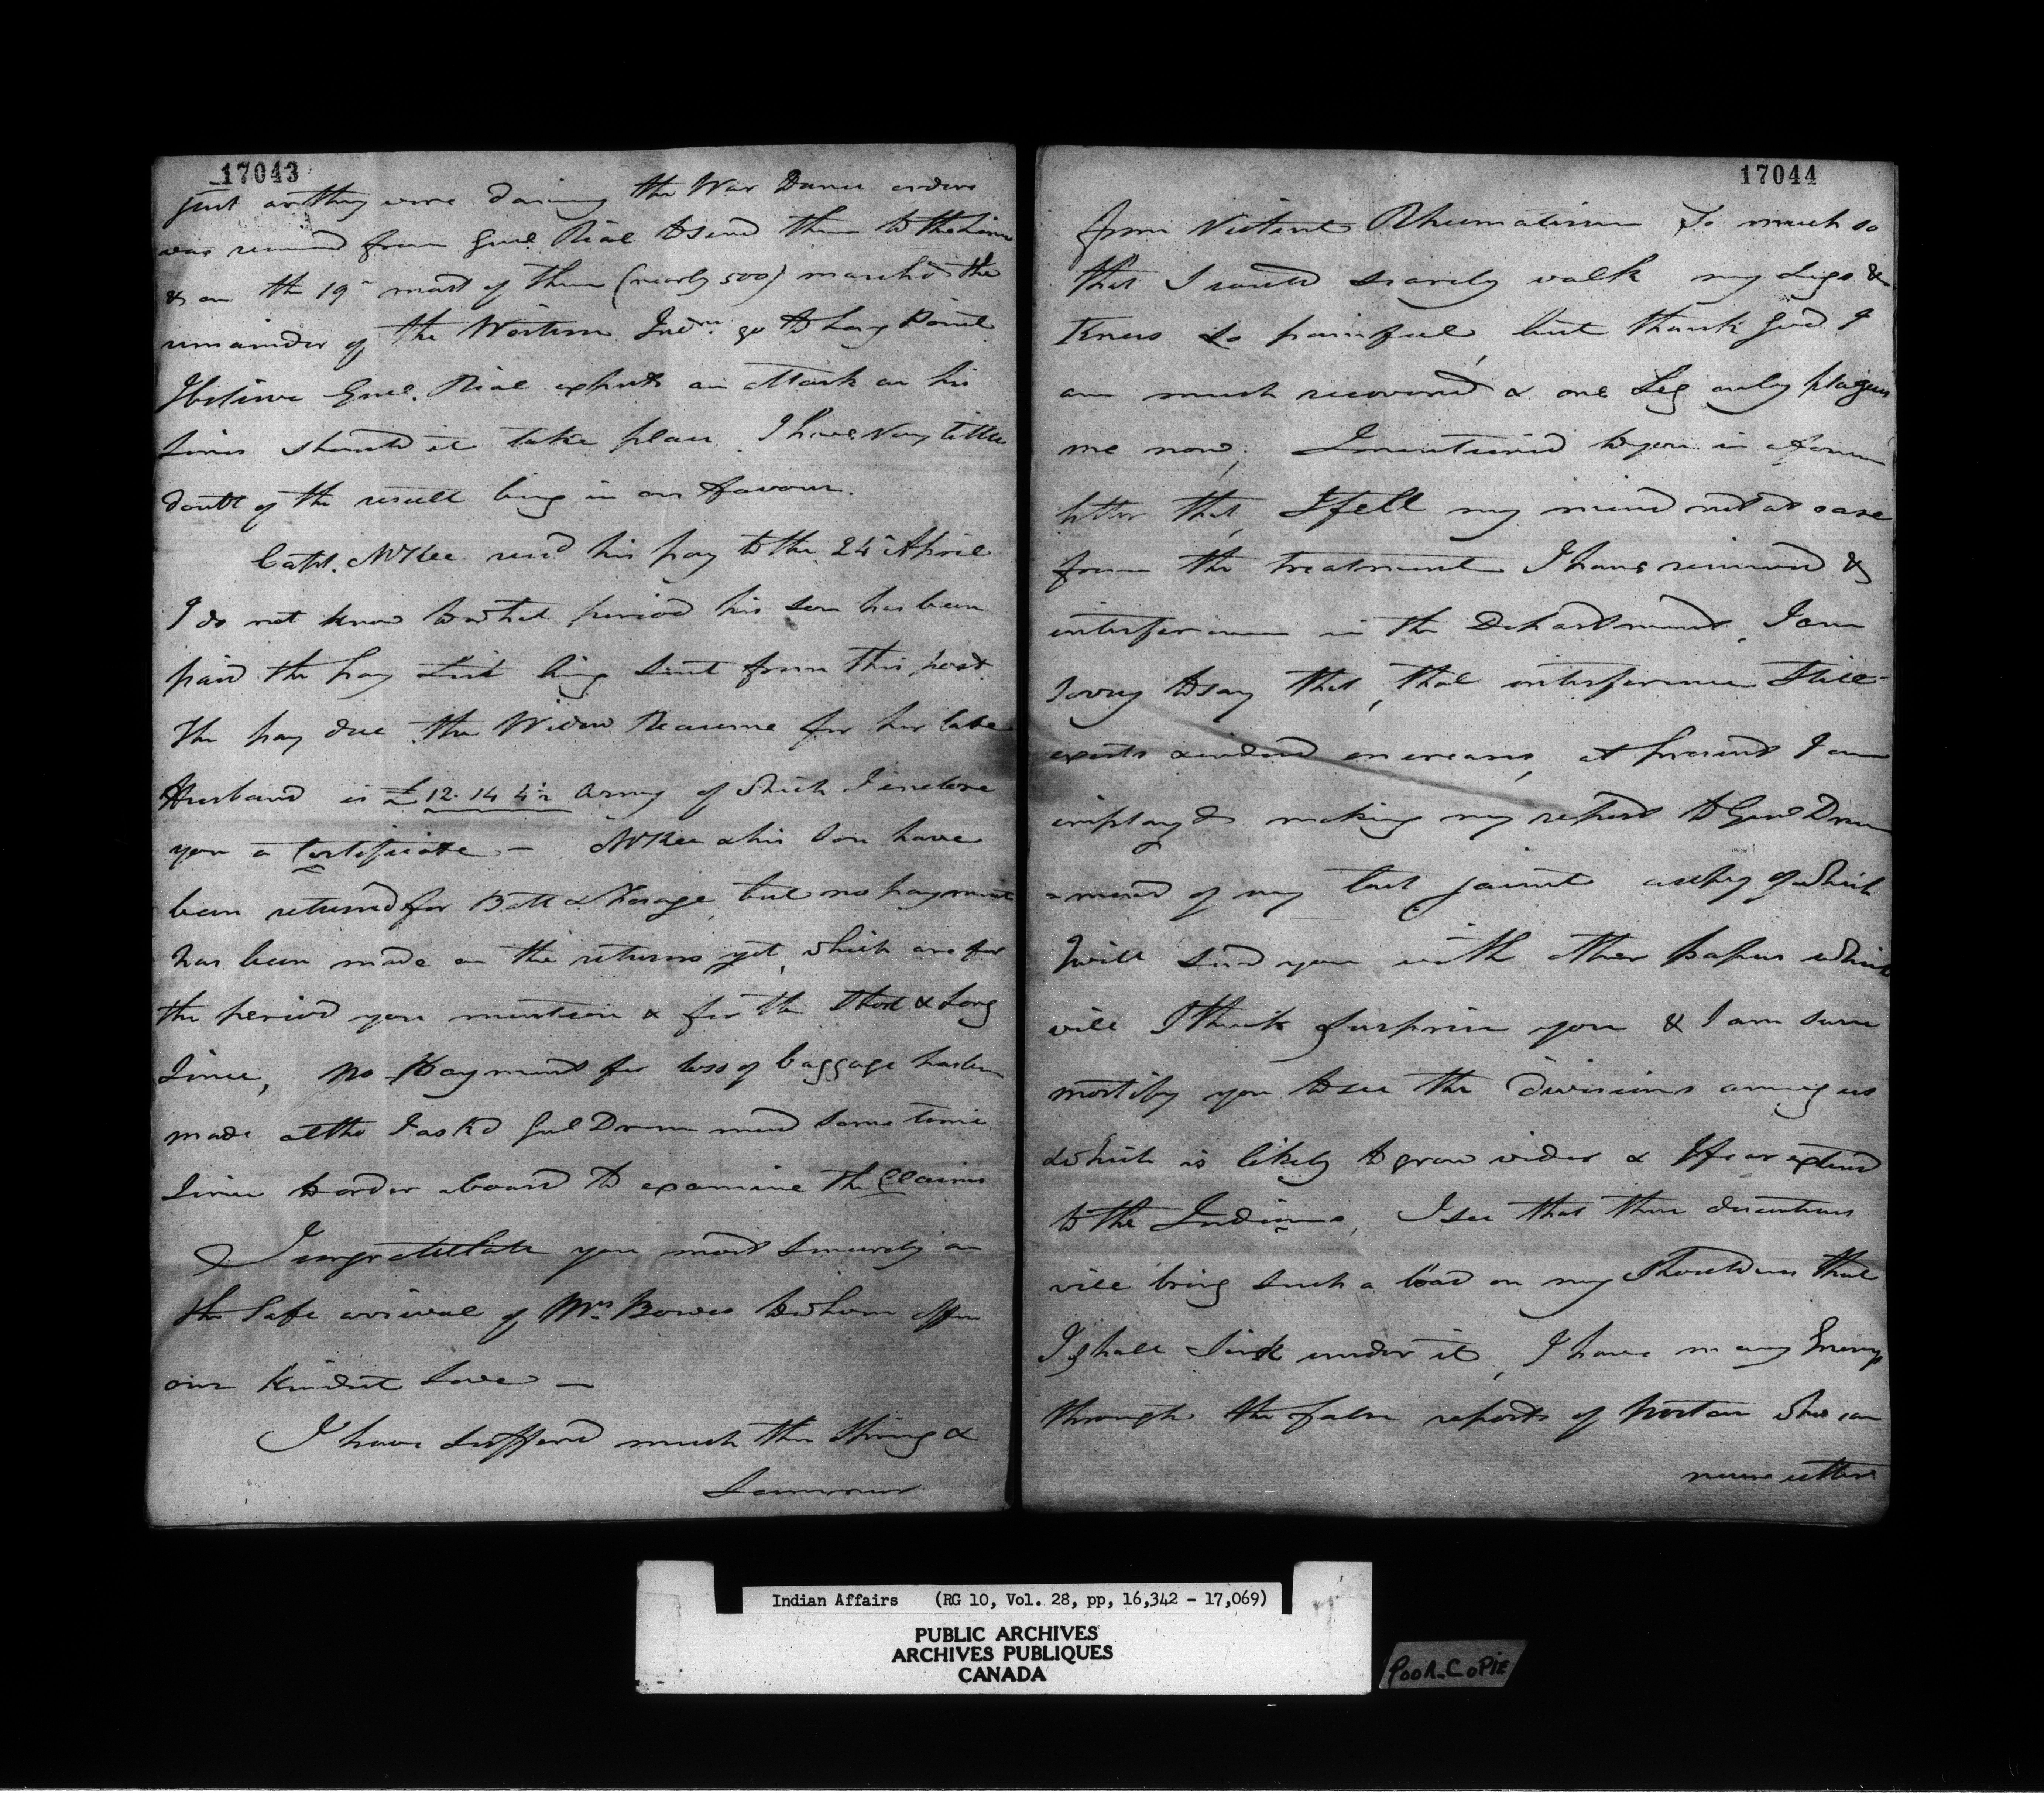 17043
just as they were dancing the War Dance orders
was received from Genl. Rial to send them to the Line
& on the 19th most of them (nearly 500) marched the
remainder of the Western Inds. go to Long Point
I believe Genl. Rial expects an attack on his
Lines should it take place I have very little
doubt of the result being in our favour.
Capt. McKee recd his pay to the 24th April
I do not know to what period his son has been
paid the pay List being sent from this post.
The pay due the Widow Reaume for her late
Husband is £12.14 4½ Army of which I enclose
you a Certificate — McKee & his Son have
been returned for Batt & Forage, but no payment
has been made on the returns yet, which are for
the period you mention & for the
Since, No Payment for loss of baggage has been
made altho I ask'd Genl Drummond some time
Since to order a board to examine the Claims
I congratulate you most Sincerely on
the Safe arrival of Mrs. Bowes to whom offer
our Kindest Love —
I have suffered much this Spring &
Summer
17044
from Violent Rheumatism So much so
that I could scarcely walk my Legs &
Knees so painful, but thank God I
am much recovered & one Leg only plagues
me now; I mentioned to you in a former
letter that, I felt my mind not at ease
from the treatment I have received &
interference in the Department, I am
sorry to say that, that interference Still
exists & indeed encreases, at present I am
employed making my report to Genl Drum
-mond of my last jaunt a copy of which
I will send you with other papers which
will I think surprise you & I am sure
mortify you to see the divisions among us
which is likely to grow wider & I fear extend
to the Indians, I see that these
will bring such a load on my Shoulders that
I shall sink under it, I have many Enemys
through the false reports of Norton who can
never utter
Indian Affairs (RG 10, Vol. 28, pp, 16,342 - 17,069)
PUBLIC ARCHIVES
ARCHIVES PUBLIQUES
CANADA
POOR COPIE